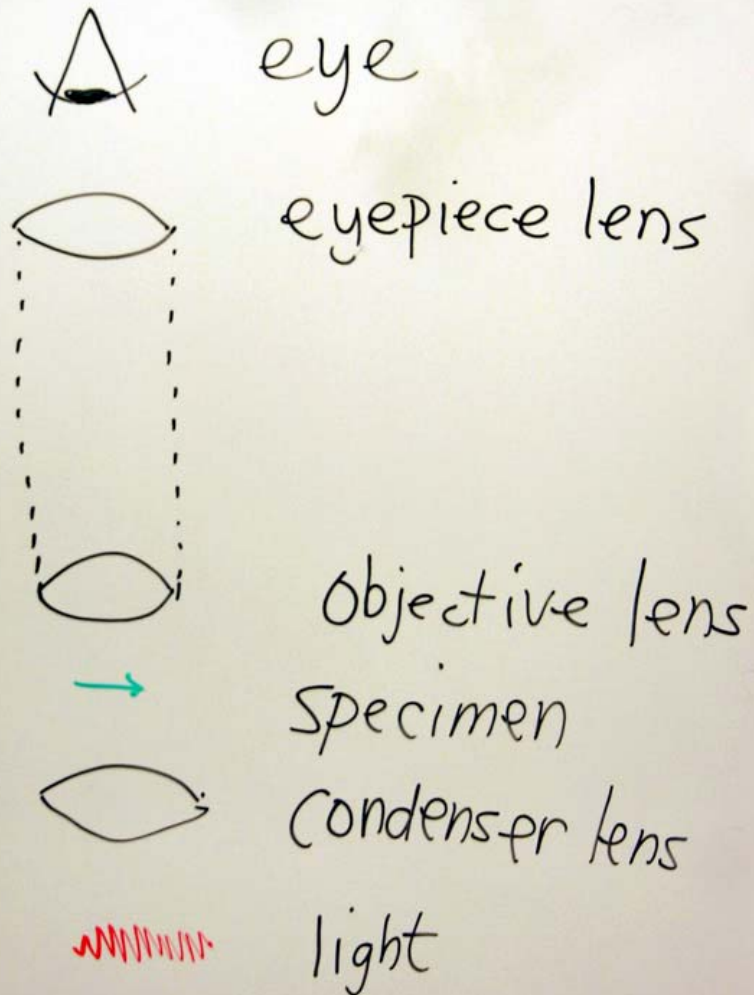 eye
eyepiece lens
Objective lens
Specimen
Condenser lens
light